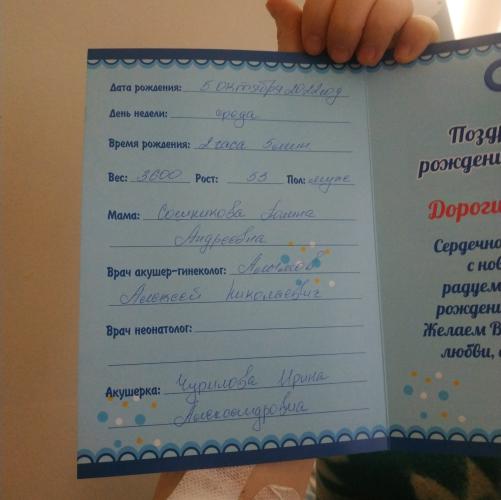 Дата рождения: 5 октября 2022 год
День недели: среда
Время рождения: 2 часа 5 мин
Вес: 3600 Рост: 53 Пол: муж
Мама: Сошникова
Андреевна
Врач акушер-гинеколог:
Алексей Николаевич
Врач неонатолог:
Акушерка: Чурилова Ирина
Александровна
Позд
рождени
Дороги
Сердечно
с нов
радуем
рожден
Желаем В
любви,